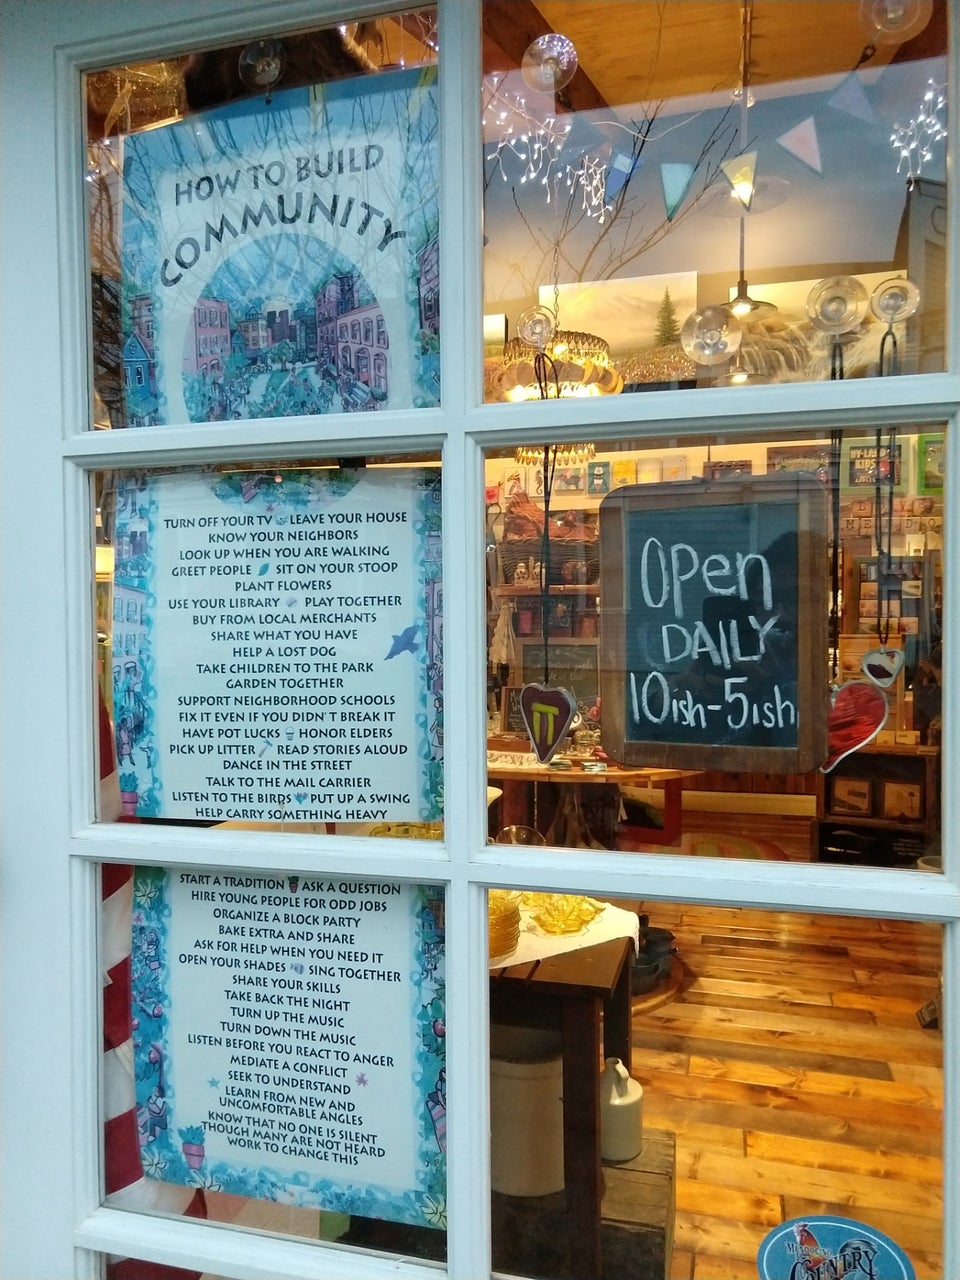 HOW TO BUILD
COMMUNITY
TURN OFF YOUR TV LEAVE YOUR HOUSE
KNOW YOUR NEIGHBORS
LOOK UP WHEN YOU ARE WALKING
GREET PEOPLE SIT ON YOUR STOOP
PLANT FLOWERS
USE YOUR LIBRARY PLAY TOGETHER
BUY FROM LOCAL MERCHANTS
SHARE WHAT YOU HAVE
HELP A LOST DOG
TAKE CHILDREN TO THE PARK
GARDEN TOGETHER
SUPPORT NEIGHBORHOOD SCHOOLS
FIX IT EVEN IF YOU DIDN'T BREAK IT
HAVE POT LUCKS HONOR ELDERS
PICK UP LITTER READ STORIES ALOUD
DANCE IN THE STREET
TALK TO THE MAIL CARRIER
LISTEN TO THE BIRDS PUT UP A SWING
HELP CARRY SOMETHING HEAVY
START A TRADITION ASK A QUESTION
HIRE YOUNG PEOPLE FOR ODD JOBS
ORGANIZE A BLOCK PARTY
BAKE EXTRA AND SHARE
ASK FOR HELP WHEN YOU NEED IT
OPEN YOUR SHADES SING TOGETHER
SHARE YOUR SKILLS
TAKE BACK THE NIGHT
TURN UP THE MUSIC
TURN DOWN THE MUSIC
LISTEN BEFORE YOU REACT TO ANGER
MEDIATE A CONFLICT
SEEK TO UNDERSTAND
LEARN FROM NEW AND
UNCOMFORTABLE ANGLES
KNOW THAT NO ONE IS SILENT
THOUGH MANY ARE NOT HEARD
WORK TO CHANGE THIS
HY-LAND
KIDS
APPLES
OPen
DAILY
10ish-5ish
MENDOCINO
COUNTRY